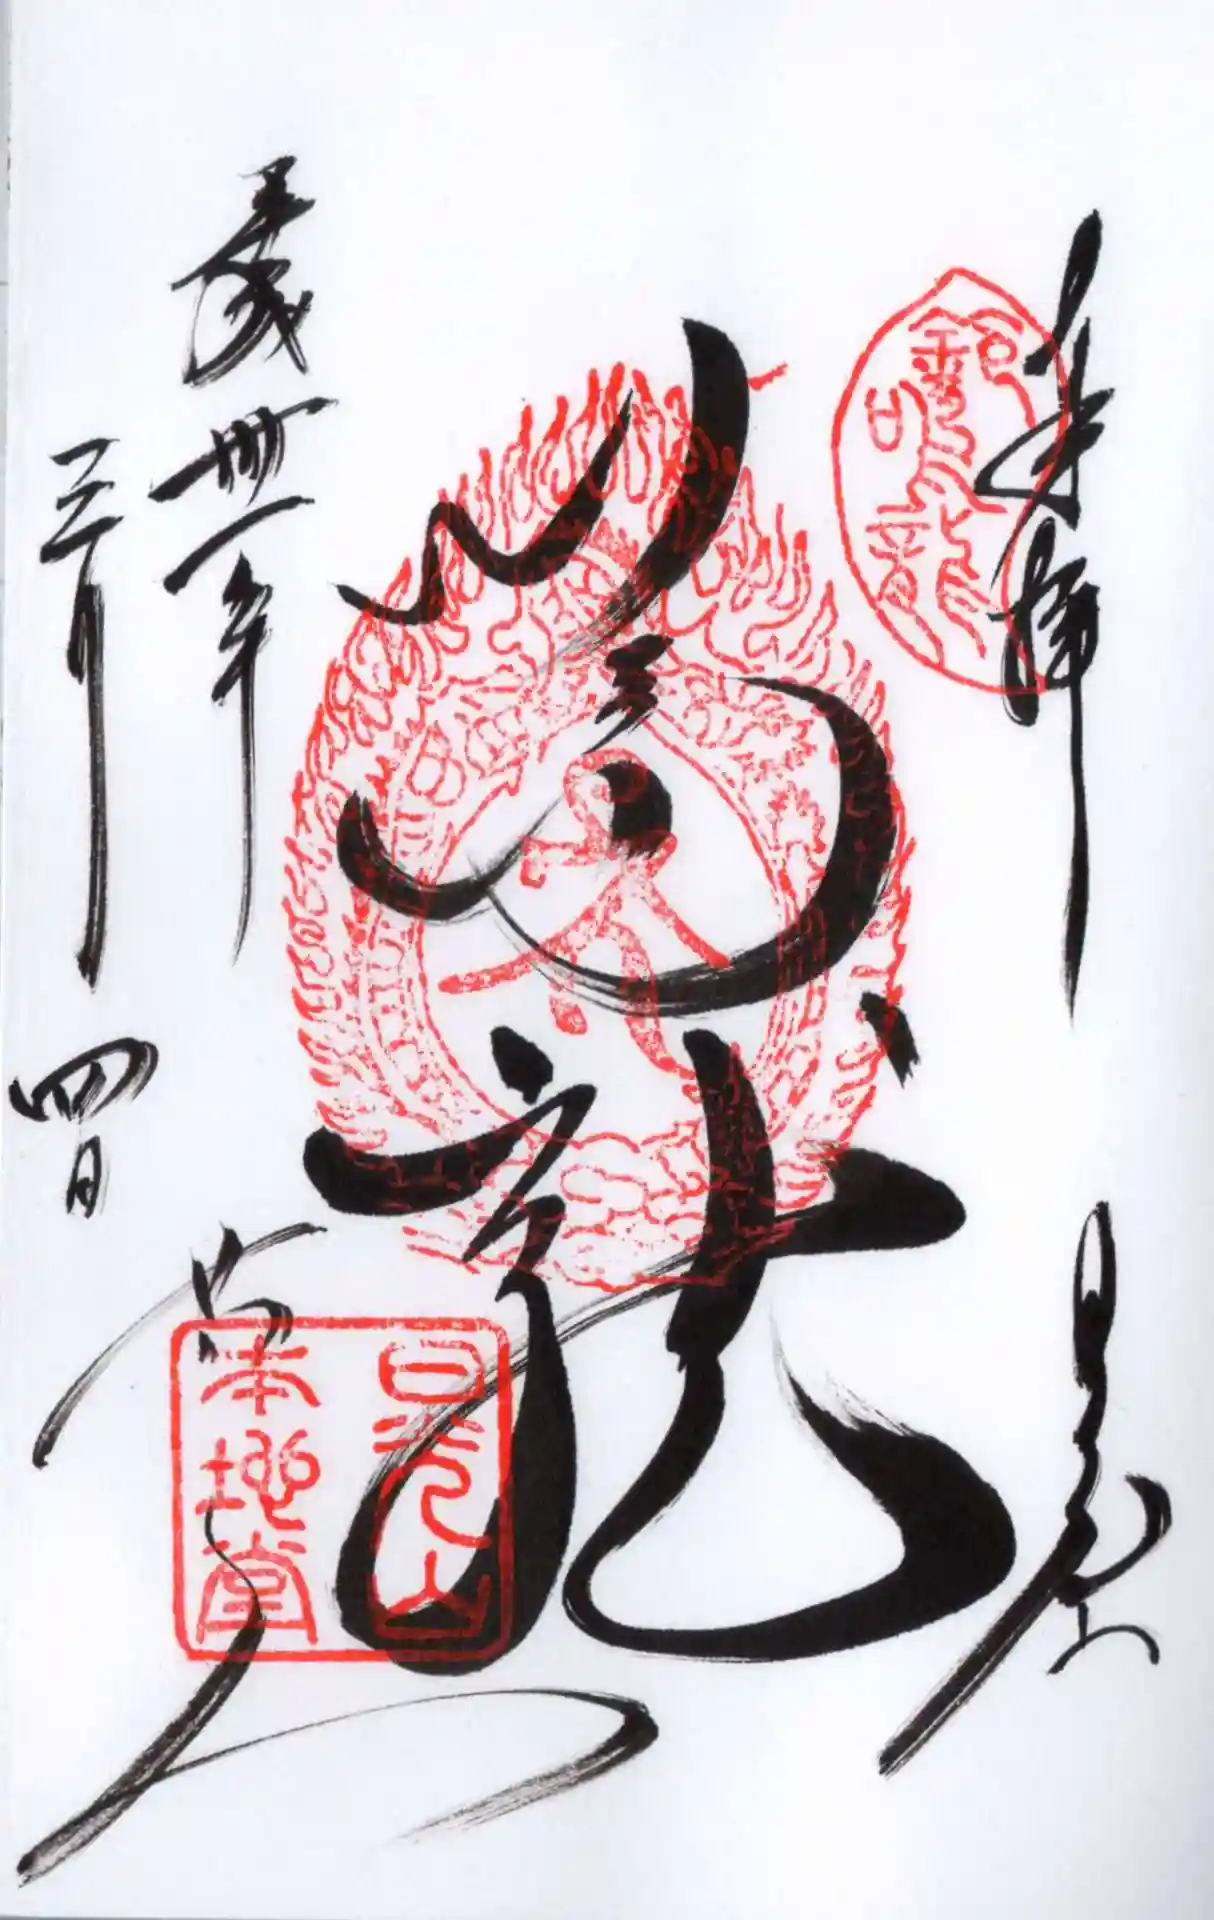 奉拝
日光山
鈴鳴龍
鳴龍
日光山
本地堂
平成卅一年
三月四日